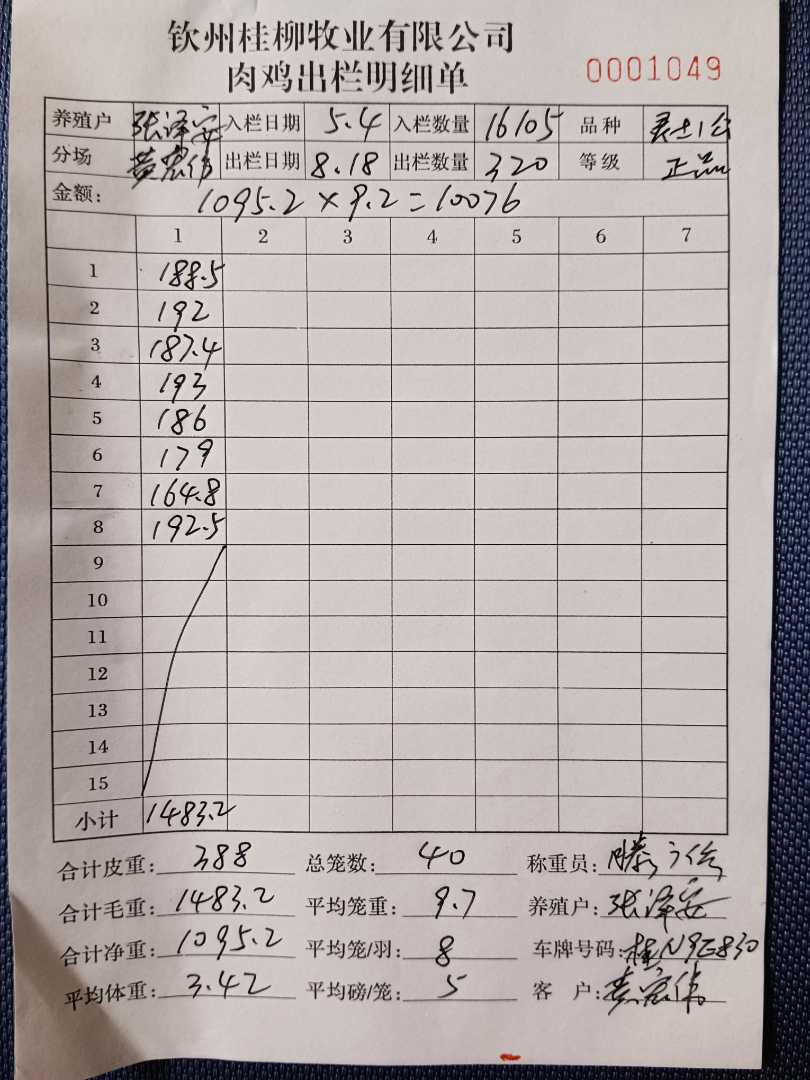 钦州桂柳牧业有限公司
肉鸡出栏明细单
0001049
养殖户 张泽安 入栏日期 5.4 入栏数量 16105 品种 灵土1公
分场 黄宏伟 出栏日期 8.18 出栏数量 320 等级 正品
金额: 1095.2×9.2=10076
1 2 3 4 5 6 7
1 188.5
2 192
3 187.4
4 193
5 186
6 179
7 164.8
8 192.5
9
10
11
12
13
14
15
小计 1483.2
合计皮重: 388 总笼数: 40 称重员:
合计毛重: 1483.2 平均笼重: 9.7 养殖户: 张泽安
合计净重: 1095.2 平均笼/羽: 8 车牌号码: 桂N9E830
平均体重: 3.42 平均磅/笼: 5 客 户: 黄宏伟